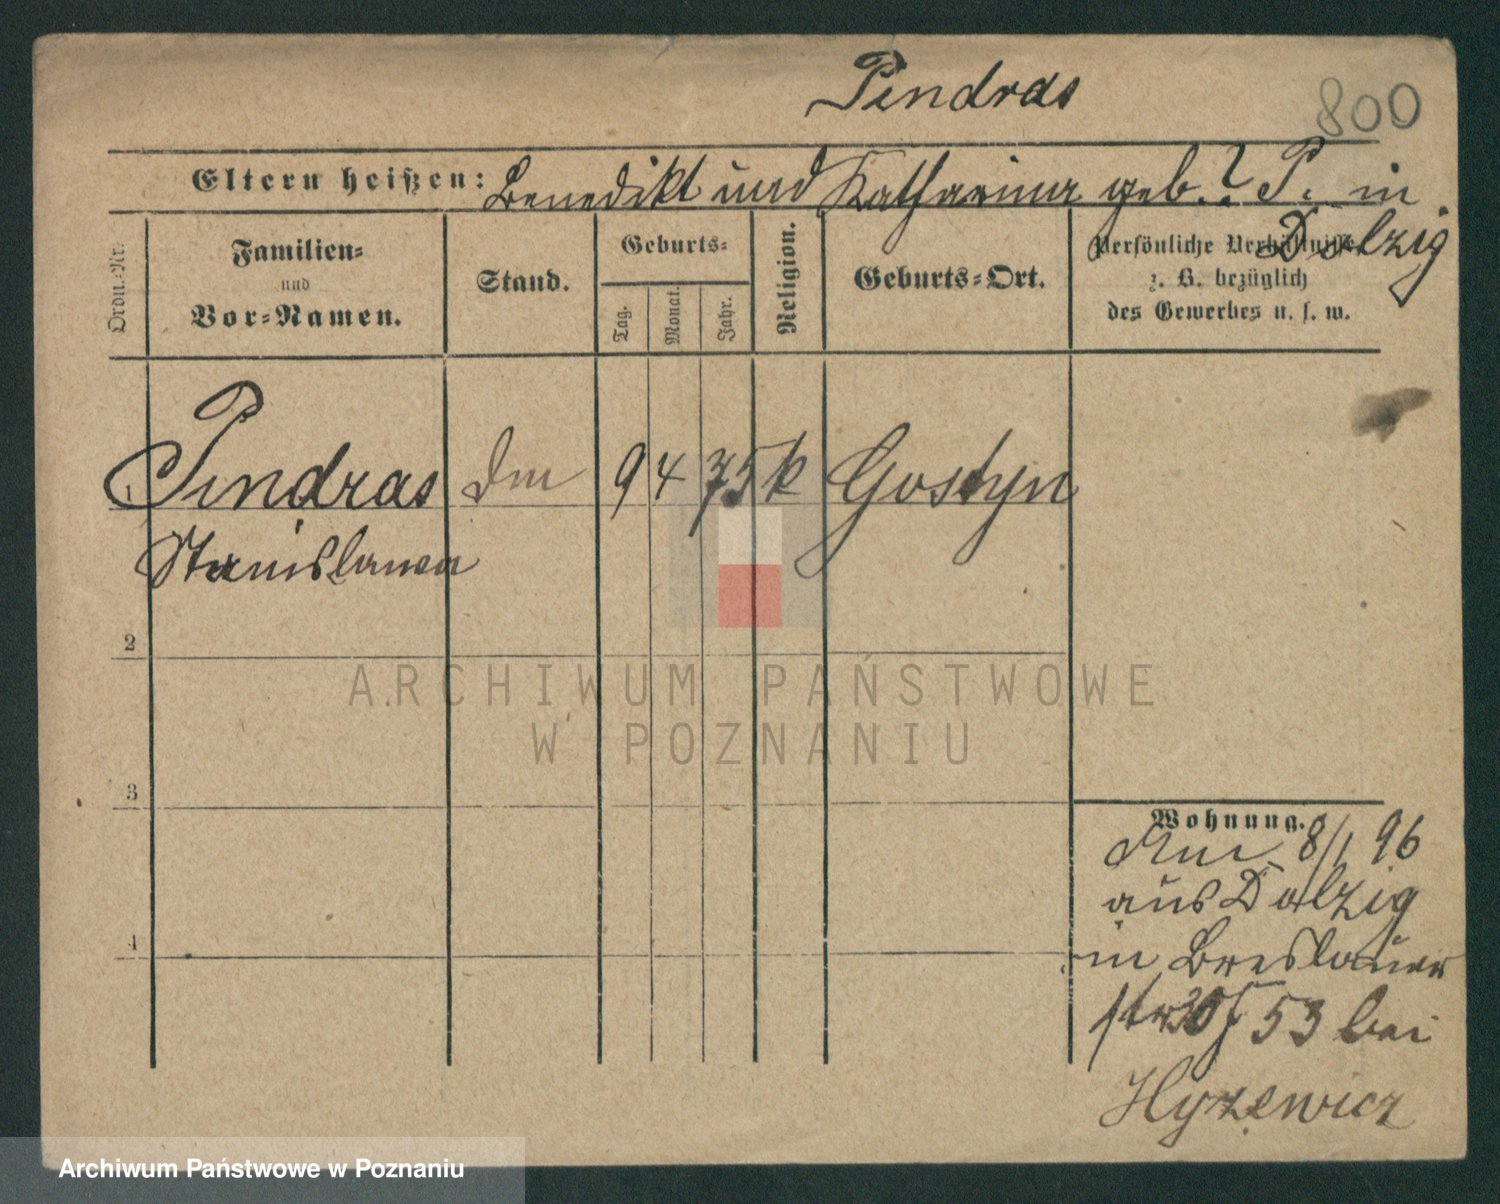 Pendras
800
Eltern heißen: Benedikt und Katharina geb. ? P. in
Dolzig
Ordn.-Nr.
Familien-
und
Vor-Namen.
Stand.
Geburts-
Tag.
Monat.
Jahr.
Religion.
Geburts-Ort.
Persönliche Verhältnisse
z. B. bezüglich
des Gewerbes u. s. w.
1
Pendras
9 4 75 k Gostyn
Stanislawa
2
ARCHIWUM PAŃSTWOWE
W POZNANIU
3
Wohnung.
8/1 96
aus Dolzig
4
in Breslauer
str 53 bei
Hyzewicz
Archiwum Państwowe w Poznaniu